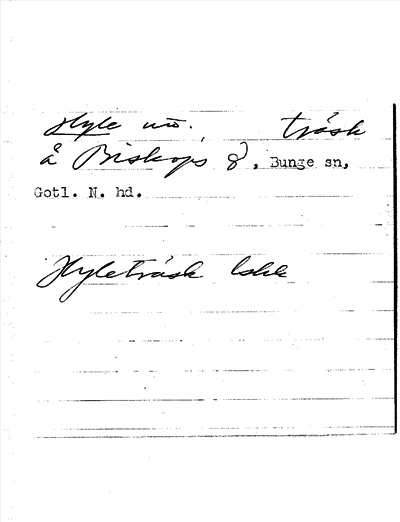 Hyle uö. träsk
å Biskops 8, Bunge sn,
Gotl. N. hd.
Hyleträsk lokk